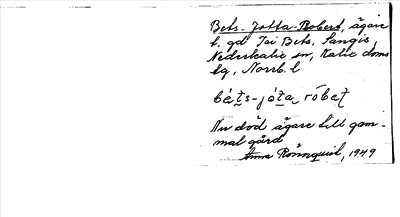 Bets-Jotta-Robert, ägare
t. gd Toi Bets, Sangis,
Nederkalix sn, Kalix doms
lg, Norrb. l
bèt̬s-jót̬a, róbeʈ
Nu död ägare till gam-
mal gård
Anna Rönnquist, 1949